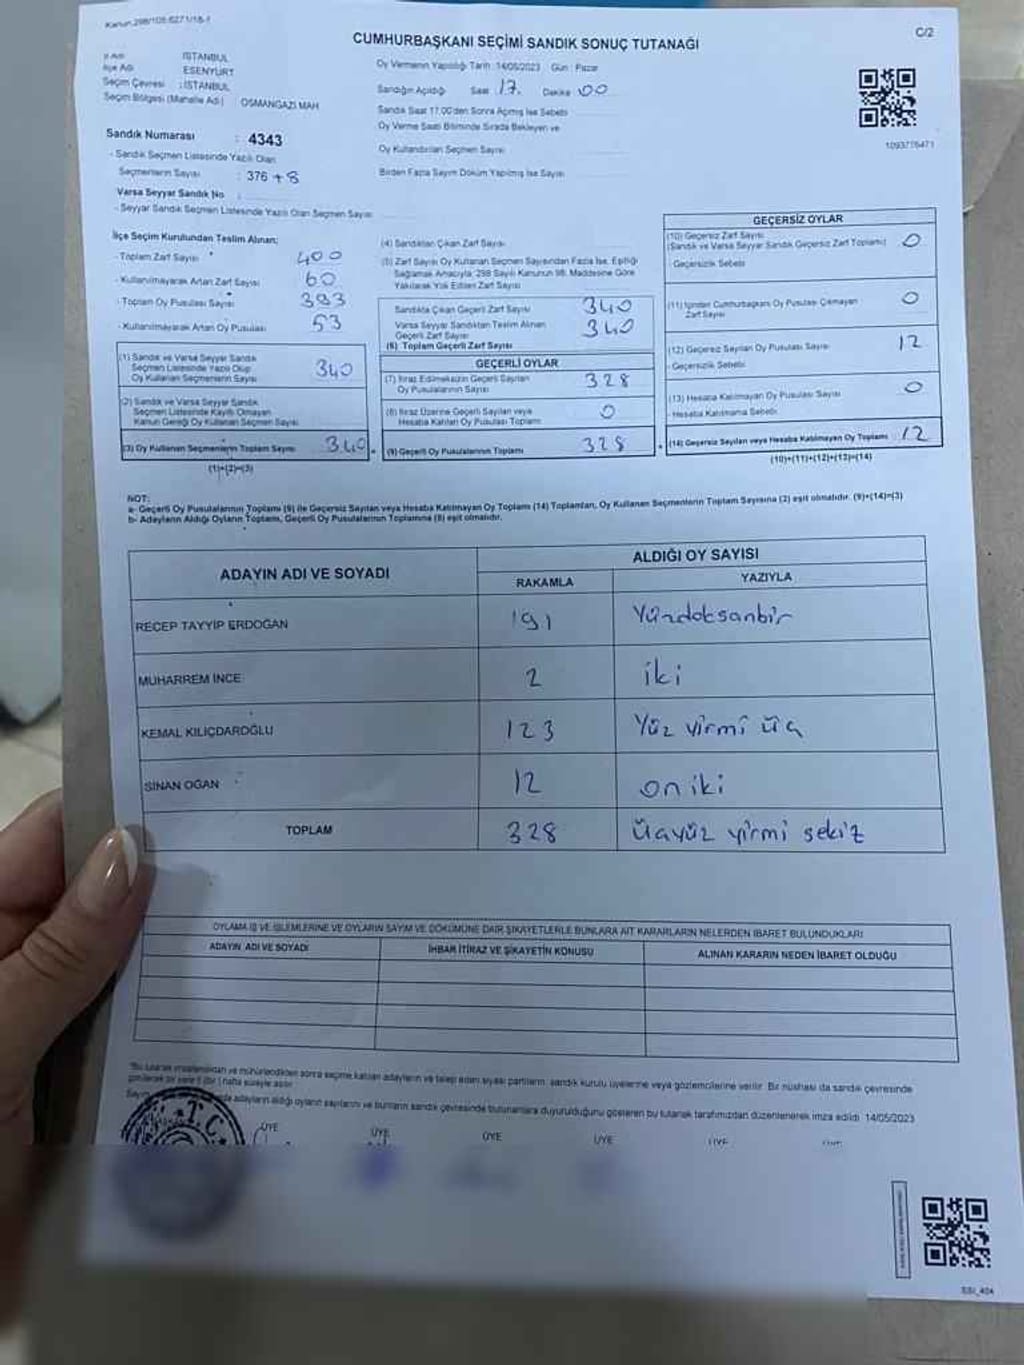 Kanun 298/105-6271/18-1
C/2
CUMHURBAŞKANI SEÇİMİ SANDIK SONUÇ TUTANAĞI
İl Adı : İSTANBUL
İlçe Adı : ESENYURT
Seçim Çevresi : İSTANBUL
Seçim Bölgesi (Mahalle Adı) OSMANGAZİ MAH
Oy Vermenin Yapıldığı Tarih : 14/05/2023 Gün : Pazar
Sandığın Açıldığı Saat 17. Dakika 00
Sandık Saat 17.00'den Sonra Açılmış İse Sebebi
Oy Verme Saati Bitiminde Sırada Bekleyen ve
Oy Kullandırılan Seçmen Sayısı
Birden Fazla Sayım Döküm Yapılmış İse Sayısı
1093776471
Sandık Numarası : 4343
- Sandık Seçmen Listesinde Yazılı Olan
Seçmenlerin Sayısı : 376 +8
Varsa Seyyar Sandık No :
- Seyyar Sandık Seçmen Listesinde Yazılı Olan Seçmen Sayısı
İlçe Seçim Kurulundan Teslim Alınan:
- Toplam Zarf Sayısı 400
- Kullanılmayarak Artan Zarf Sayısı 60
- Toplam Oy Pusulası Sayısı 393
- Kullanılmayarak Artan Oy Pusulası 53
(1) Sandık ve Varsa Seyyar Sandık
Seçmen Listesinde Yazılı Olup
Oy Kullanan Seçmenlerin Sayısı 340
(2) Sandık ve Varsa Seyyar Sandık
Seçmen Listesinde Kayıtlı Olmayan
Kanun Gereği Oy Kullanan Seçmen Sayısı
(3) Oy Kullanan Seçmenlerin Toplam Sayısı 340
(1)+(2)=(3)
(4) Sandıktan Çıkan Zarf Sayısı
(5) Zarf Sayısı Oy Kullanan Seçmen Sayısından Fazla İse, Eşitliği
Sağlamak Amacıyla, 298 Sayılı Kanunun 98. Maddesine Göre
Yakılarak Yok Edilen Zarf Sayısı
Sandıkta Çıkan Geçerli Zarf Sayısı 340
Varsa Seyyar Sandıktan Teslim Alınan
Geçerli Zarf Sayısı 340
(6) Toplam Geçerli Zarf Sayısı
GEÇERLİ OYLAR
(7) İtiraz Edilmeksizin Geçerli Sayılan
Oy Pusulalarının Sayısı 328
(8) İtiraz Üzerine Geçerli Sayılan veya
Hesaba Katılan Oy Pusulası Toplamı 0
(9) Geçerli Oy Pusulalarının Toplamı 328
GEÇERSİZ OYLAR
(10) Geçersiz Zarf Sayısı
(Sandık ve Varsa Seyyar Sandık Geçersiz Zarf Toplamı) 0
- Geçersizlik Sebebi
(11) İçinden Cumhurbaşkanı Oy Pusulası Çıkmayan
Zarf Sayısı 0
(12) Geçersiz Sayılan Oy Pusulası Sayısı 12
- Geçersizlik Sebebi
(13) Hesaba Katılmayan Oy Pusulası Sayısı 0
- Hesaba Katılmama Sebebi
(14) Geçersiz Sayılan veya Hesaba Katılmayan Oy Toplamı 12
(10)+(11)+(12)+(13)=(14)
NOT:
a- Geçerli Oy Pusulalarının Toplamı (9) ile Geçersiz Sayılan veya Hesaba Katılmayan Oy Toplamı (14) Toplamları, Oy Kullanan Seçmenlerin Toplam Sayısına (3) eşit olmalıdır. (9)+(14)=(3)
b- Adayların Aldığı Oyların Toplamı, Geçerli Oy Pusulalarının Toplamına (9) eşit olmalıdır.
ADAYIN ADI VE SOYADI
ALDIĞI OY SAYISI
RAKAMLA YAZIYLA
RECEP TAYYİP ERDOĞAN 191 Yüzdoksanbir
MUHARREM İNCE 2 iki
KEMAL KILIÇDAROĞLU 123 Yüz yirmi üç
SİNAN OĞAN 12 on iki
TOPLAM 328 üçyüz yirmi sekiz
OYLAMA İŞ VE İŞLEMLERİNE VE OYLARIN SAYIM VE DÖKÜMÜNE DAİR ŞİKAYETLERLE BUNLARA AİT KARARLARIN NELERDEN İBARET BULUNDUKLARI
ADAYIN ADI VE SOYADI İHBAR İTİRAZ VE ŞİKAYETİN KONUSU ALINAN KARARIN NEDEN İBARET OLDUĞU
"Bu tutanak imzalandıktan ve mühürlendikten sonra seçime katılan adayların ve talep eden siyasi partilerin sandık kurulu üyelerine veya gözlemcilerine verilir. Bir nüshası da sandık çevresinde
görülecek bir yere 1 (bir) hafta süreyle asılır.
Sayım adayların aldığı oyların sayılarını ve bunların sandık çevresinde bulunanlara duyurulduğunu gösteren bu tutanak tarafımızdan düzenlenerek imza edildi. 14/05/2023
T.C.
ÜYE ÜYE ÜYE ÜYE ÜYE
SSI_404